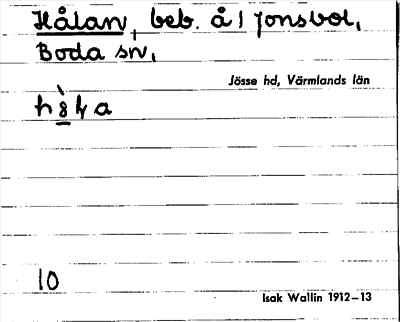 Hålan, beb. å 1 Jonsbol,
Boda sn,
Jösse hd, Värmlands län
10
Isak Wallin 1912–13